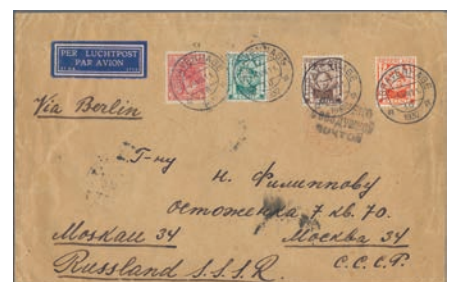 PER LUCHTPOST
PAR AVION
Via Berlin
Г-ну
Н. Филиппову
Остоженка 7 кв. 70.
Moskau 34 Москва 34
Russland S.S.S.R. С.С.С.Р.